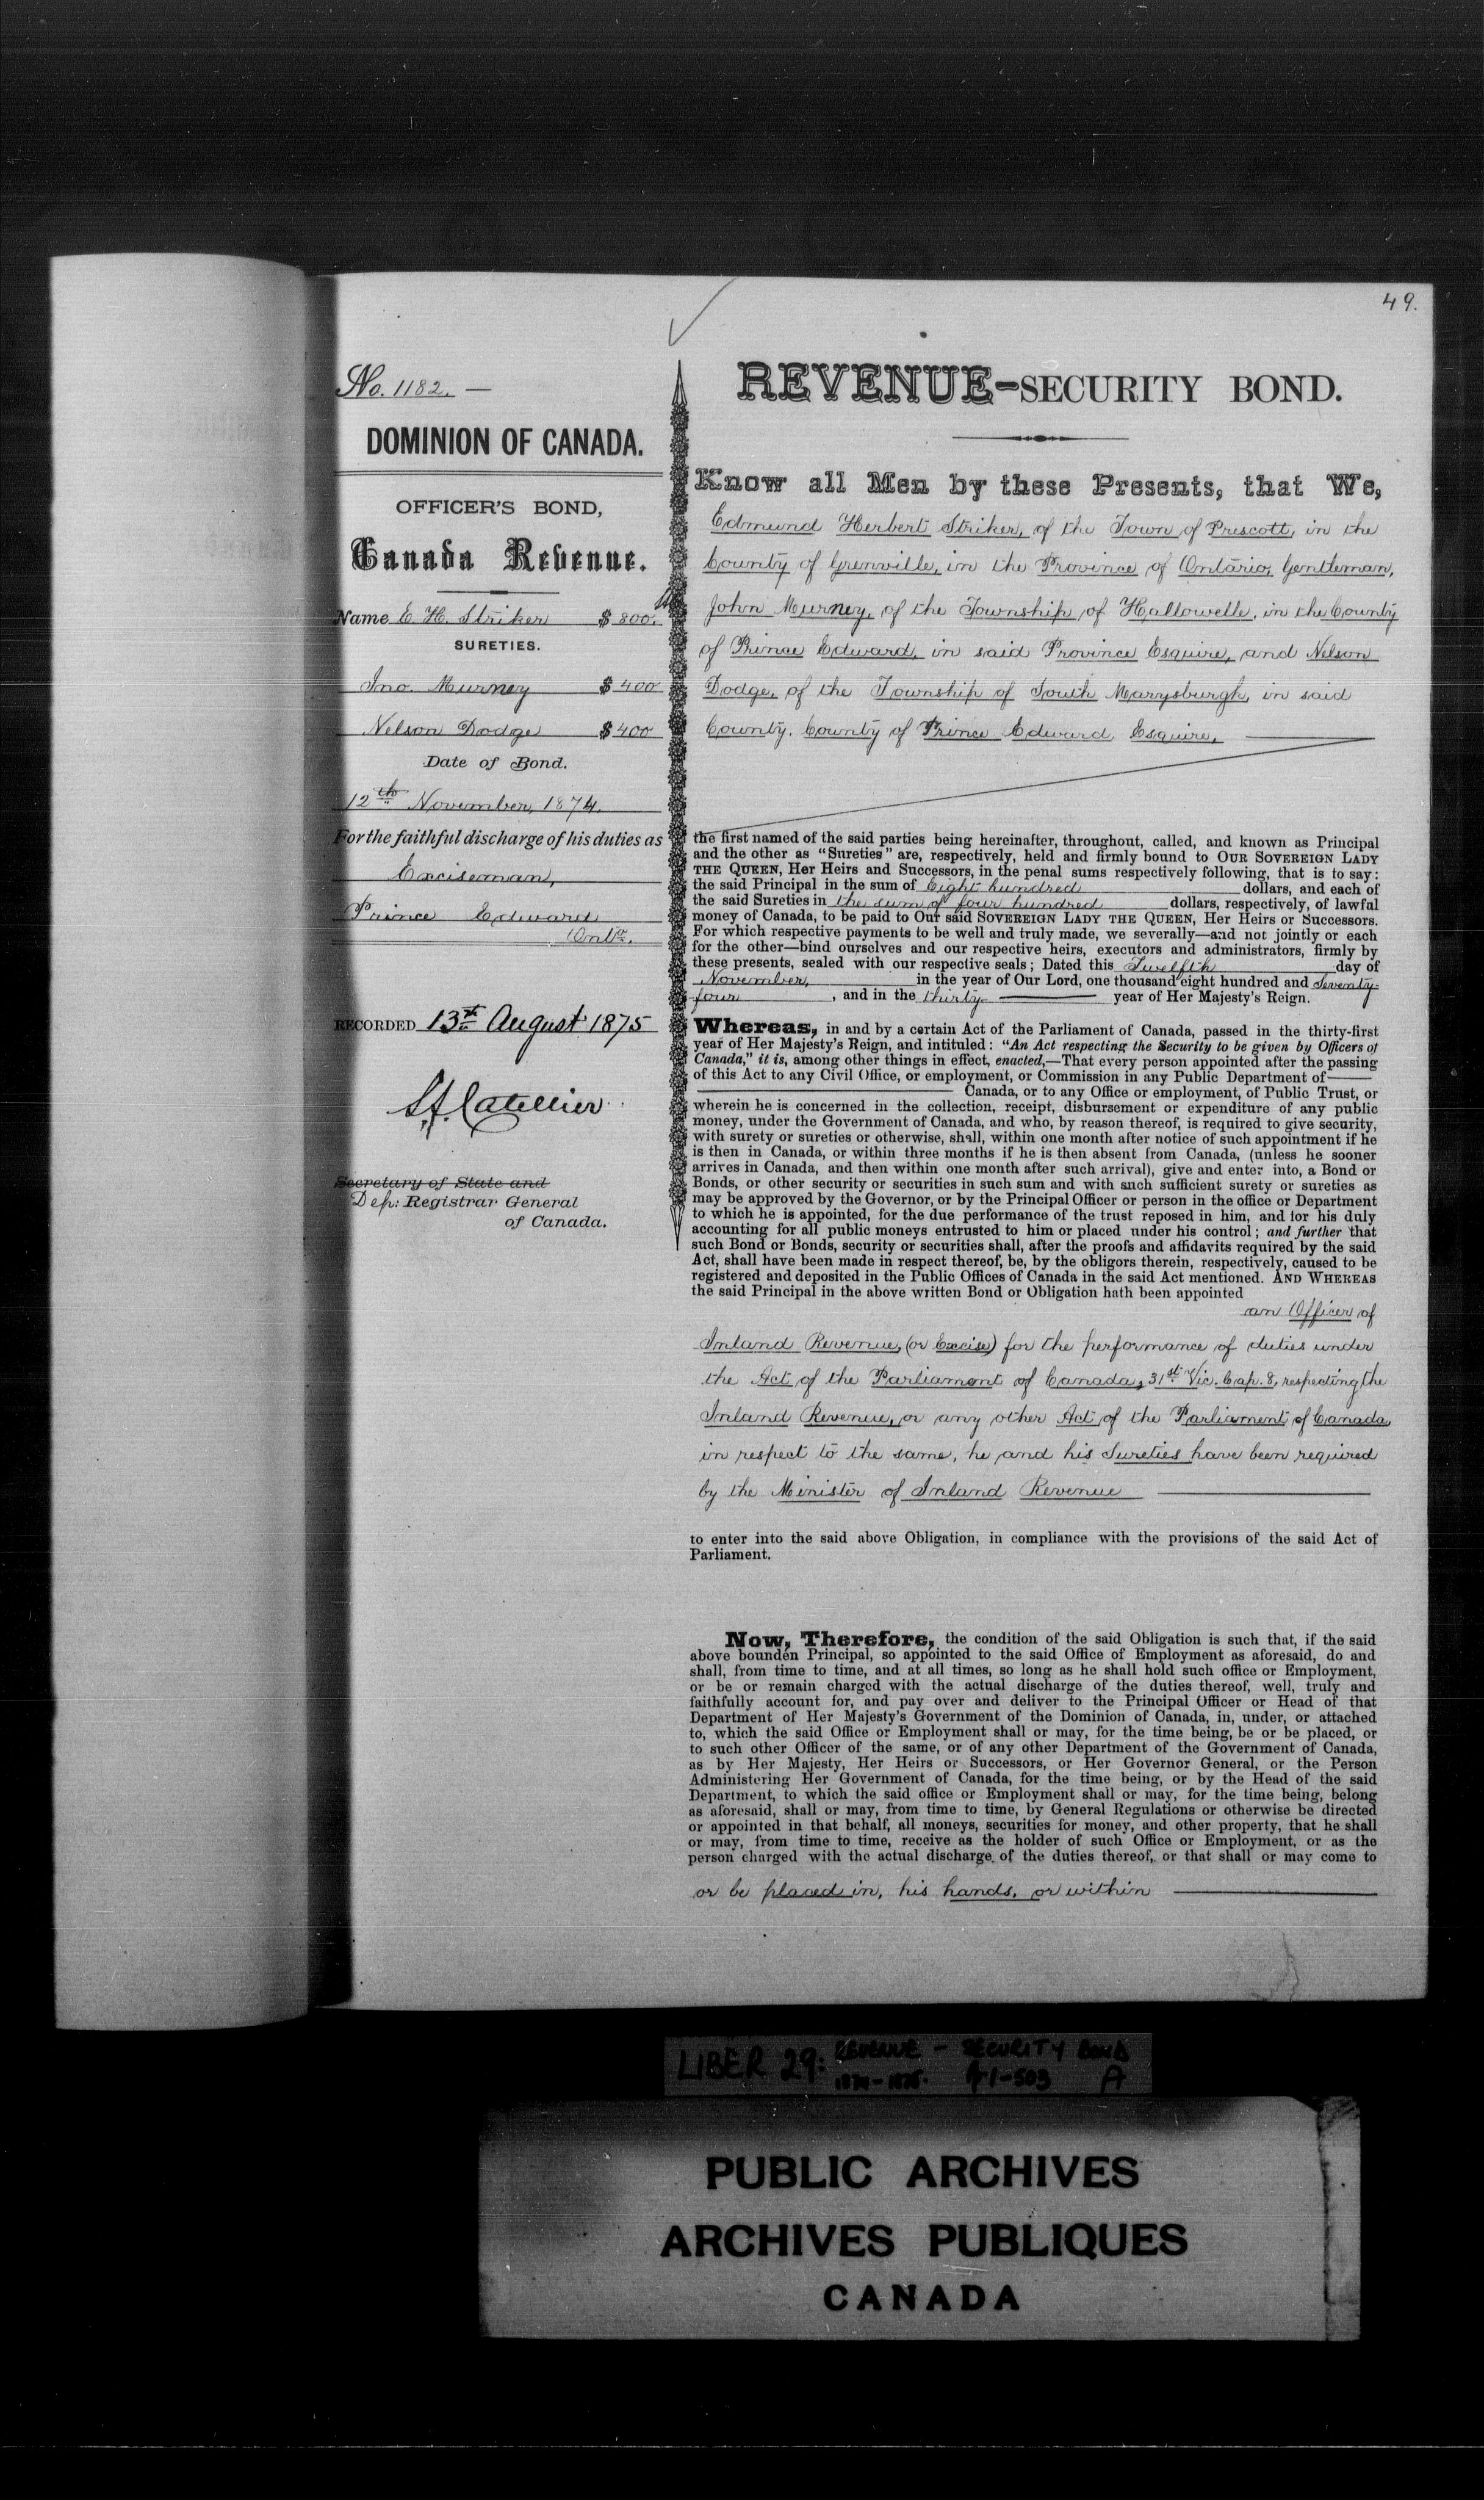 49.
No. 1182. —
DOMINION OF CANADA.
OFFICER'S BOND,
Canada Revenue.
Name E. H. Striker $ 800.
SURETIES.
Jno. Murney $ 400
Nelson Dodge $ 400
Date of Bond.
12th November, 1874.
For the faithful discharge of his duties as
Exciseman,
Prince Edward
Onto.
RECORDED 13th August 1875
Secretary of State and
Dep: Registrar General
of Canada.
REVENUE-SECURITY BOND.
Know all Men by these Presents, that We,
Edmund Herbert Striker, of the Town of Prescott, in the
County of Grenville, in the Province of Ontario, Gentleman,
John Murney, of the Township of Hallowelle, in the County
of Prince Edward, in said Province Esquire, and Nelson
Dodge, of the Township of South Marysburgh, in said
County. County of Prince Edward, Esquire,
the first named of the said parties being hereinafter, throughout, called, and known as Principal
and the other as "Sureties" are, respectively, held and firmly bound to OUR SOVEREIGN LADY
THE QUEEN, Her Heirs and Successors, in the penal sums respectively following, that is to say:
the said Principal in the sum of Eight hundred dollars, and each of
the said Sureties in the sum of four hundred dollars, respectively, of lawful
money of Canada, to be paid to Our said SOVEREIGN LADY THE QUEEN, Her Heirs or Successors.
For which respective payments to be well and truly made, we severally—and not jointly or each
for the other—bind ourselves and our respective heirs, executors and administrators, firmly by
these presents, sealed with our respective seals; Dated this Twelfth day of
November, in the year of Our Lord, one thousand eight hundred and Seventy
four , and in the thirty— year of Her Majesty's Reign.
Whereas, in and by a certain Act of the Parliament of Canada, passed in the thirty-first
year of Her Majesty's Reign, and intituled: "An Act respecting the Security to be given by Officers of
Canada," it is, among other things in effect, enacted,—That every person appointed after the passing
of this Act to any Civil Office, or employment, or Commission in any Public Department of——
—— Canada, or to any Office or employment, of Public Trust, or
wherein he is concerned in the collection, receipt, disbursement or expenditure of any public
money, under the Government of Canada, and who, by reason thereof, is required to give security,
with surety or sureties or otherwise, shall, within one month after notice of such appointment if he
is then in Canada, or within three months if he is then absent from Canada, (unless he sooner
arrives in Canada, and then within one month after such arrival), give and enter into, a Bond or
Bonds, or other security or securities in such sum and with such sufficient surety or sureties as
may be approved by the Governor, or by the Principal Officer or person in the office or Department
to which he is appointed, for the due performance of the trust reposed in him, and for his duly
accounting for all public moneys entrusted to him or placed under his control; and further that
such Bond or Bonds, security or securities shall, after the proofs and affidavits required by the said
Act, shall have been made in respect thereof, be, by the obligors therein, respectively, caused to be
registered and deposited in the Public Offices of Canada in the said Act mentioned. AND WHEREAS
the said Principal in the above written Bond or Obligation hath been appointed
an Officer of
Inland Revenue, (or Excise) for the performance of duties under
the Act of the Parliament of Canada, 31st Vic. Cap. 8, respecting the
Inland Revenue, or any other Act of the Parliament of Canada,
in respect to the same, he and his Sureties have been required
by the Minister of Inland Revenue
to enter into the said above Obligation, in compliance with the provisions of the said Act of
Parliament.
Now, Therefore, the condition of the said Obligation is such that, if the said
above bounden Principal, so appointed to the said Office of Employment as aforesaid, do and
shall, from time to time, and at all times, so long as he shall hold such office or Employment,
or be or remain charged with the actual discharge of the duties thereof, well, truly and
faithfully account for, and pay over and deliver to the Principal Officer or Head of that
Department of Her Majesty's Government of the Dominion of Canada, in, under, or attached
to, which the said Office or Employment shall or may, for the time being, be or be placed, or
to such other Officer of the same, or of any other Department of the Government of Canada,
as by Her Majesty, Her Heirs or Successors, or Her Governor General, or the Person
Administering Her Government of Canada, for the time being, or by the Head of the said
Department, to which the said office or Employment shall or may, for the time being, belong
as aforesaid, shall or may, from time to time, by General Regulations or otherwise be directed
or appointed in that behalf, all moneys, securities for money, and other property, that he shall
or may, from time to time, receive as the holder of such Office or Employment, or as the
person charged with the actual discharge of the duties thereof, or that shall or may come to
or be placed in, his hands, or within
LIBER 29: REVENUE - SECURITY BOND
A
PUBLIC ARCHIVES
ARCHIVES PUBLIQUES
CANADA